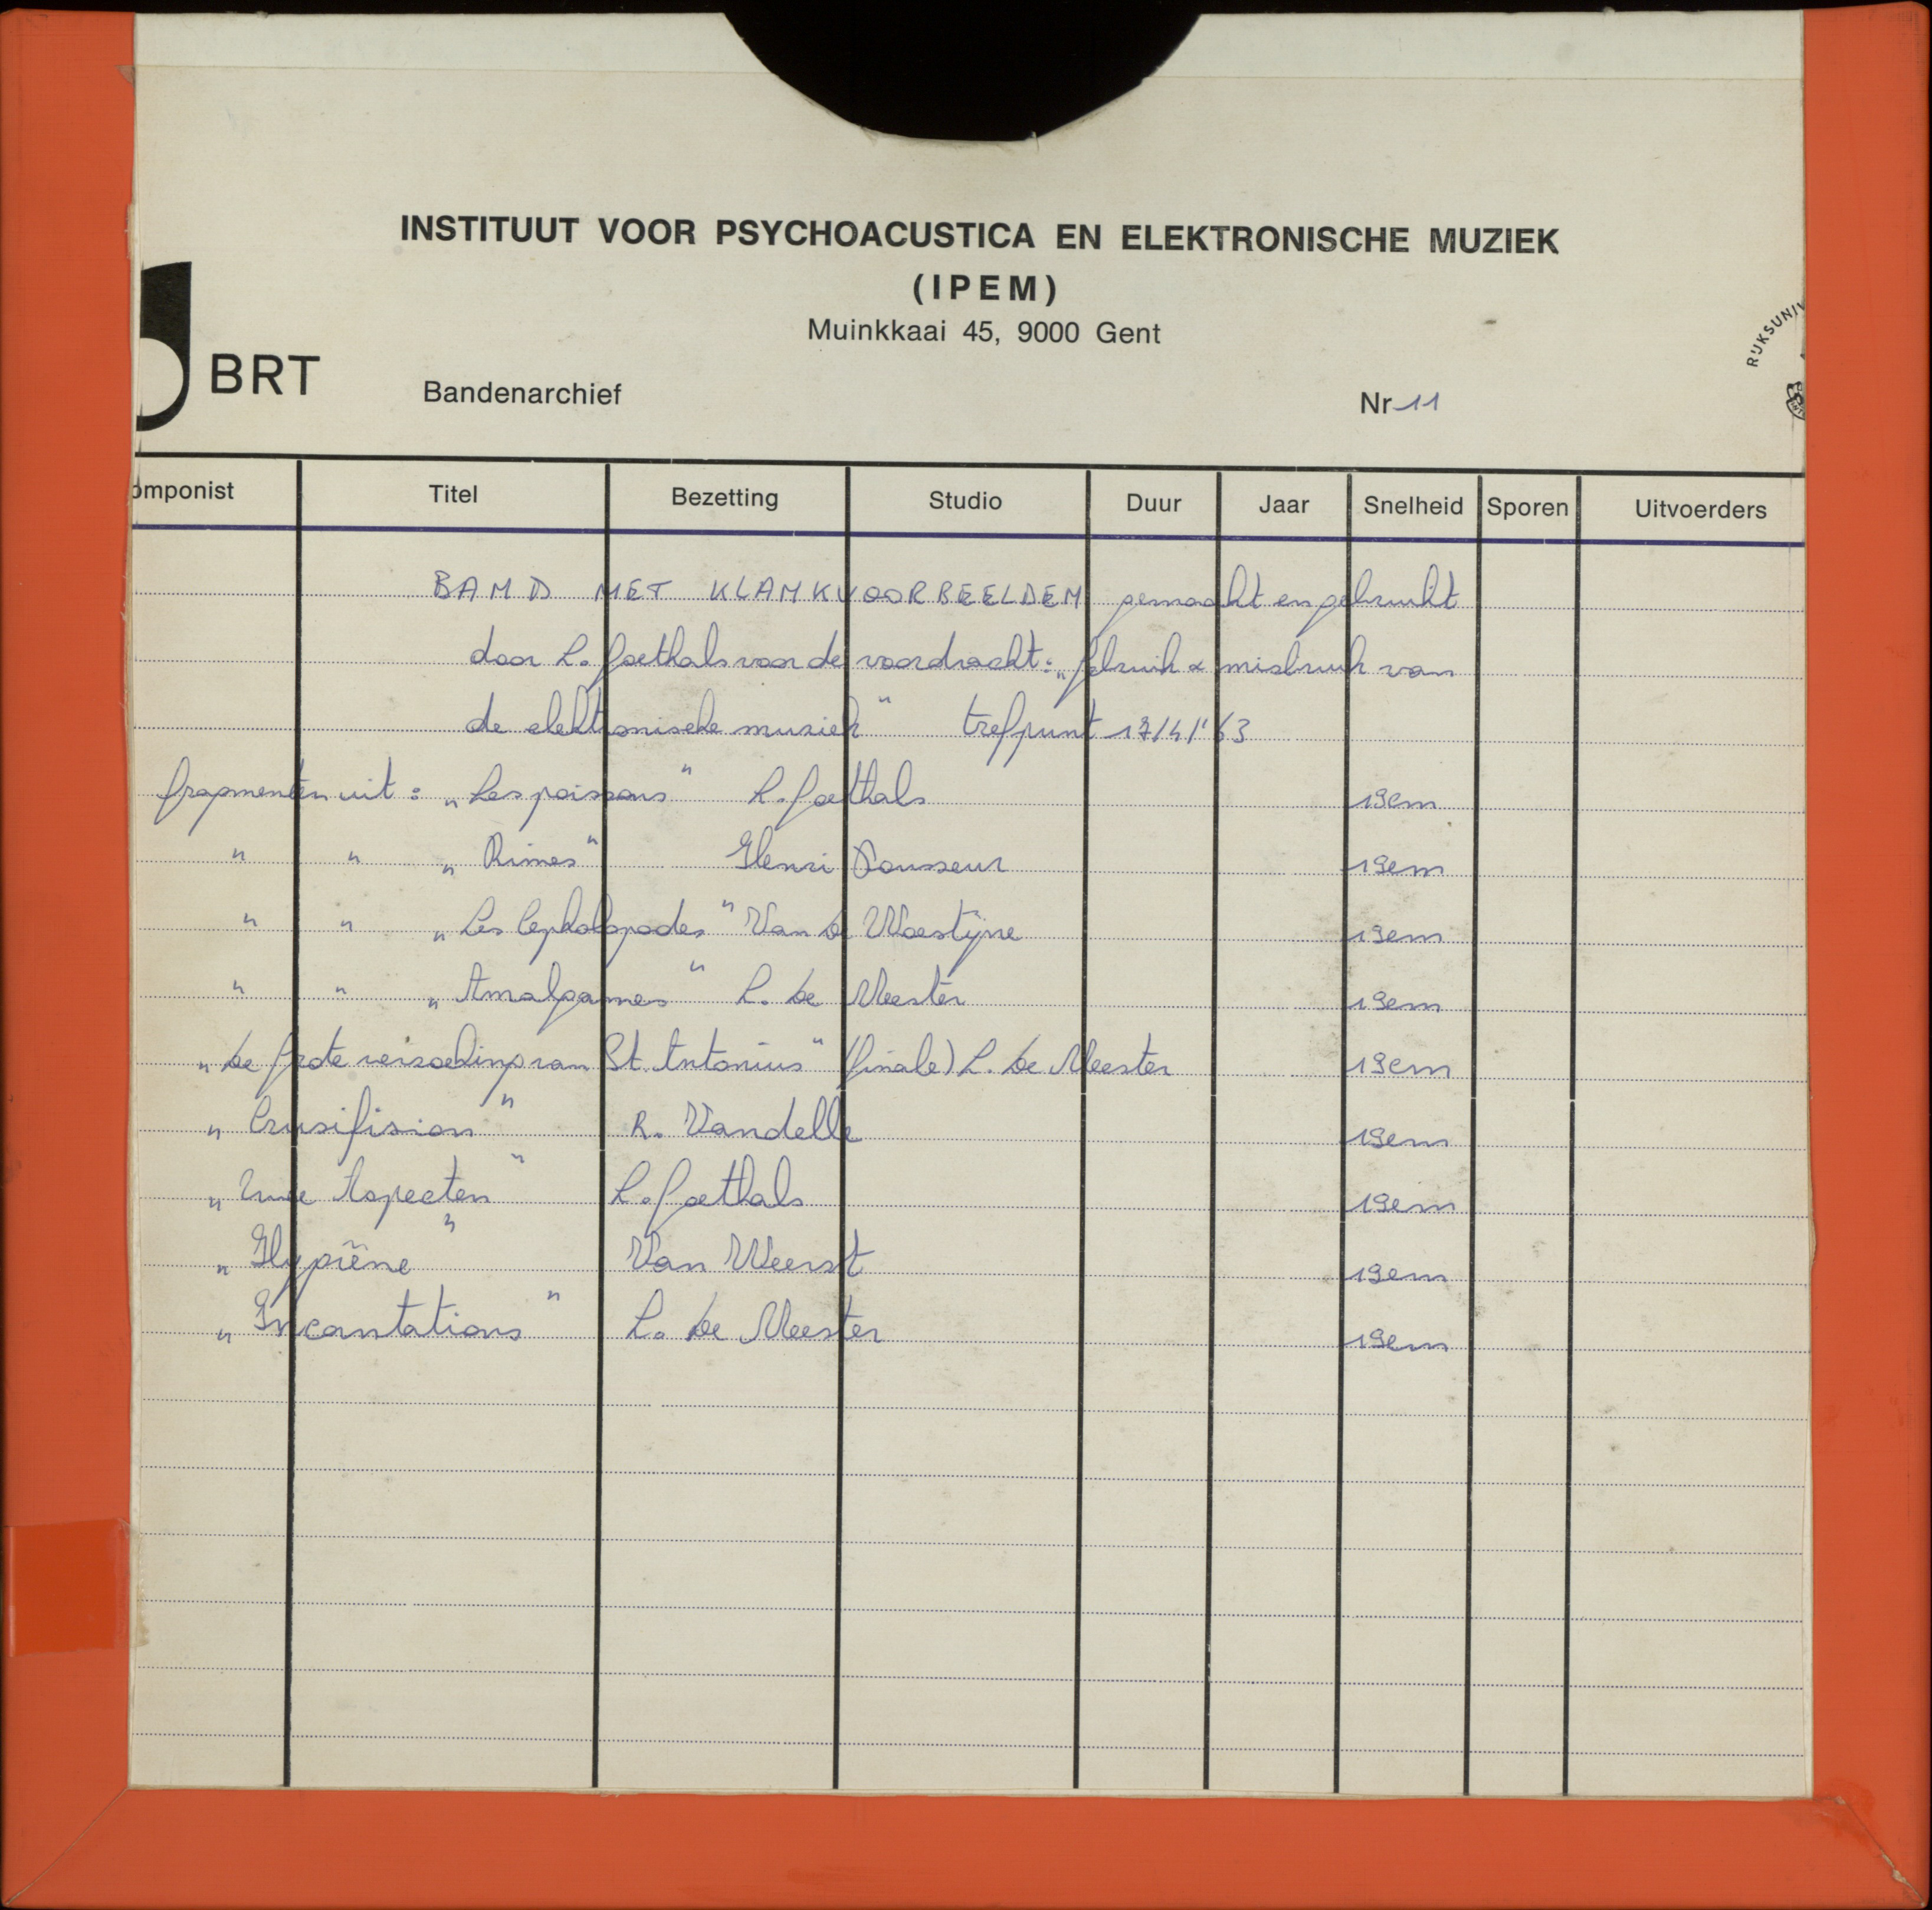 INSTITUUT VOOR PSYCHOACUSTICA EN ELEKTRONISCHE MUZIEK
(IPEM)
Muinkkaai 45, 9000 Gent
RIJKSUNIV
BRT
Bandenarchief Nr 11
omponist Titel Bezetting Studio Duur Jaar Snelheid Sporen Uitvoerders
BAND MET KLANKVOORBEELDEN gemaakt en gebruikt
door L. Goethals voor de voordracht: „Gebruik & misbruik van
de elektronische muziek" trefpunt 17/4/'63
fragmenten uit : „Les poissons" L. Goethals 19cm
" " „Rimes" Henri Pousseur 19cm
" " „Les Cephalopodes" Van de Woestijne 19cm
" " „Amalgames" L. De Meester 19cm
„De Grote verzoeking van St. Antonius" (finale) L. De Meester 19cm
„Crusifision" R. Vandelle 19cm
„ Aspecten" L. Goethals 19cm
„Hygiëne" Van Weerst 19cm
„Incantations" L. De Meester 19cm